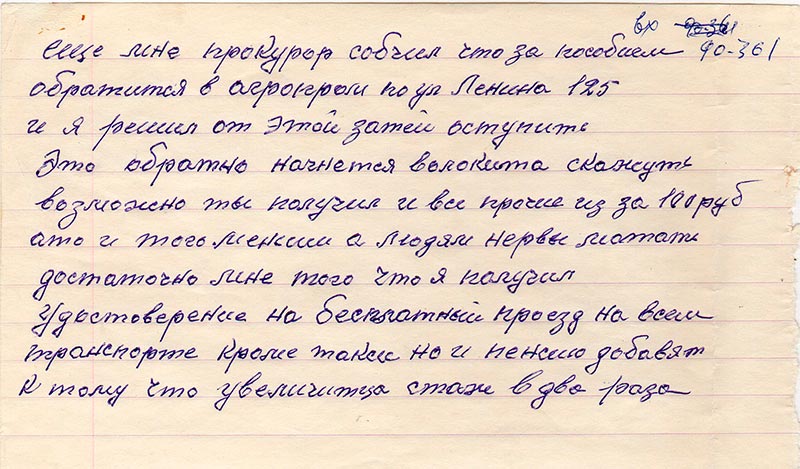 вх 90-361
еще мне прокурор собчил что за пособием 90-361
обратится в агропром по ул Ленина 125
и я решил от этой затеи оступить
Это обратно начнется волокита скажуть
возможно ты получил и все прочие из за 100 руб
ато и того менши а людям нервы мотать
достаточно мне того что я получил
Удостоверение на бесплатный проезд на всем
транспорте кроме такси но и пенсию добавят
к тому что увеличитца стаж в два раза